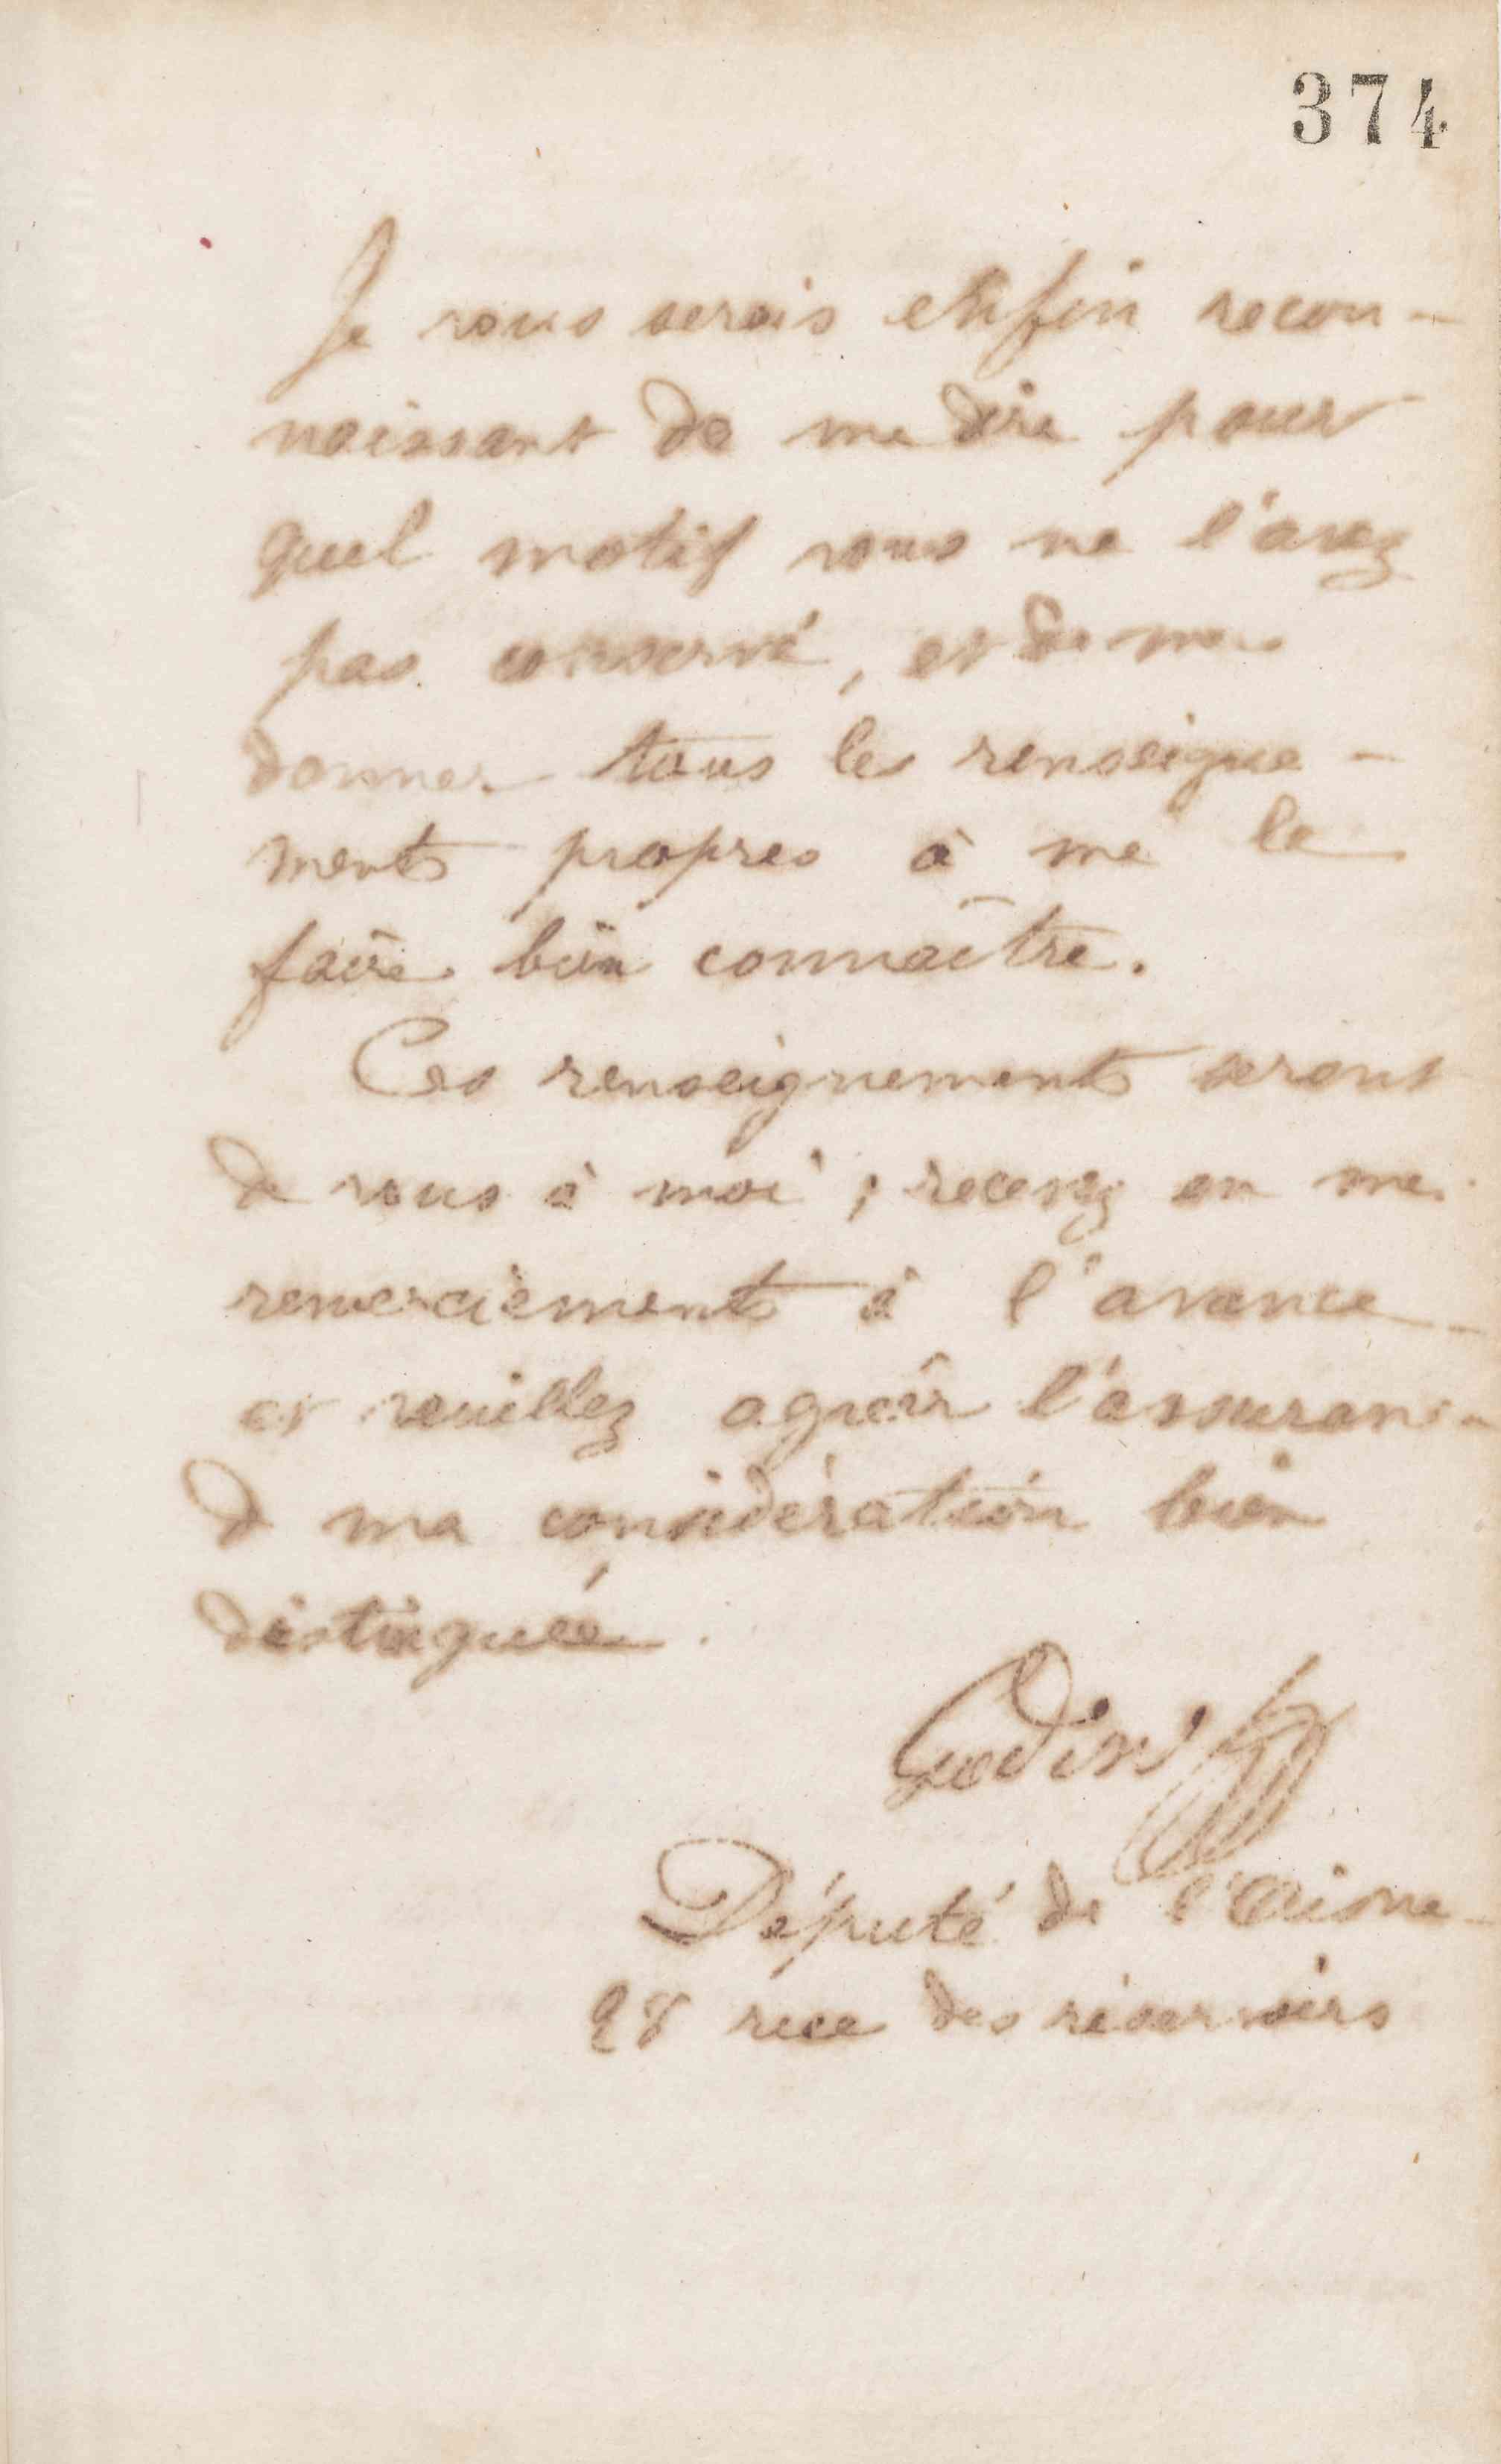 374
Je vous serais enfin recon-
naissant de me dire pour
quel motif vous ne l'avez
pas conservé, et de me
donner tous les renseigne-
ments propres à me le
faire bien connaître.
Ces renseignements seront
de vous à moi ; recevez en mes
remerciements à l'avance
et veuillez agréer l'assurance
de ma considération bien
distinguée.
Godin
Député de l'Aisne
28 rue des réservoirs